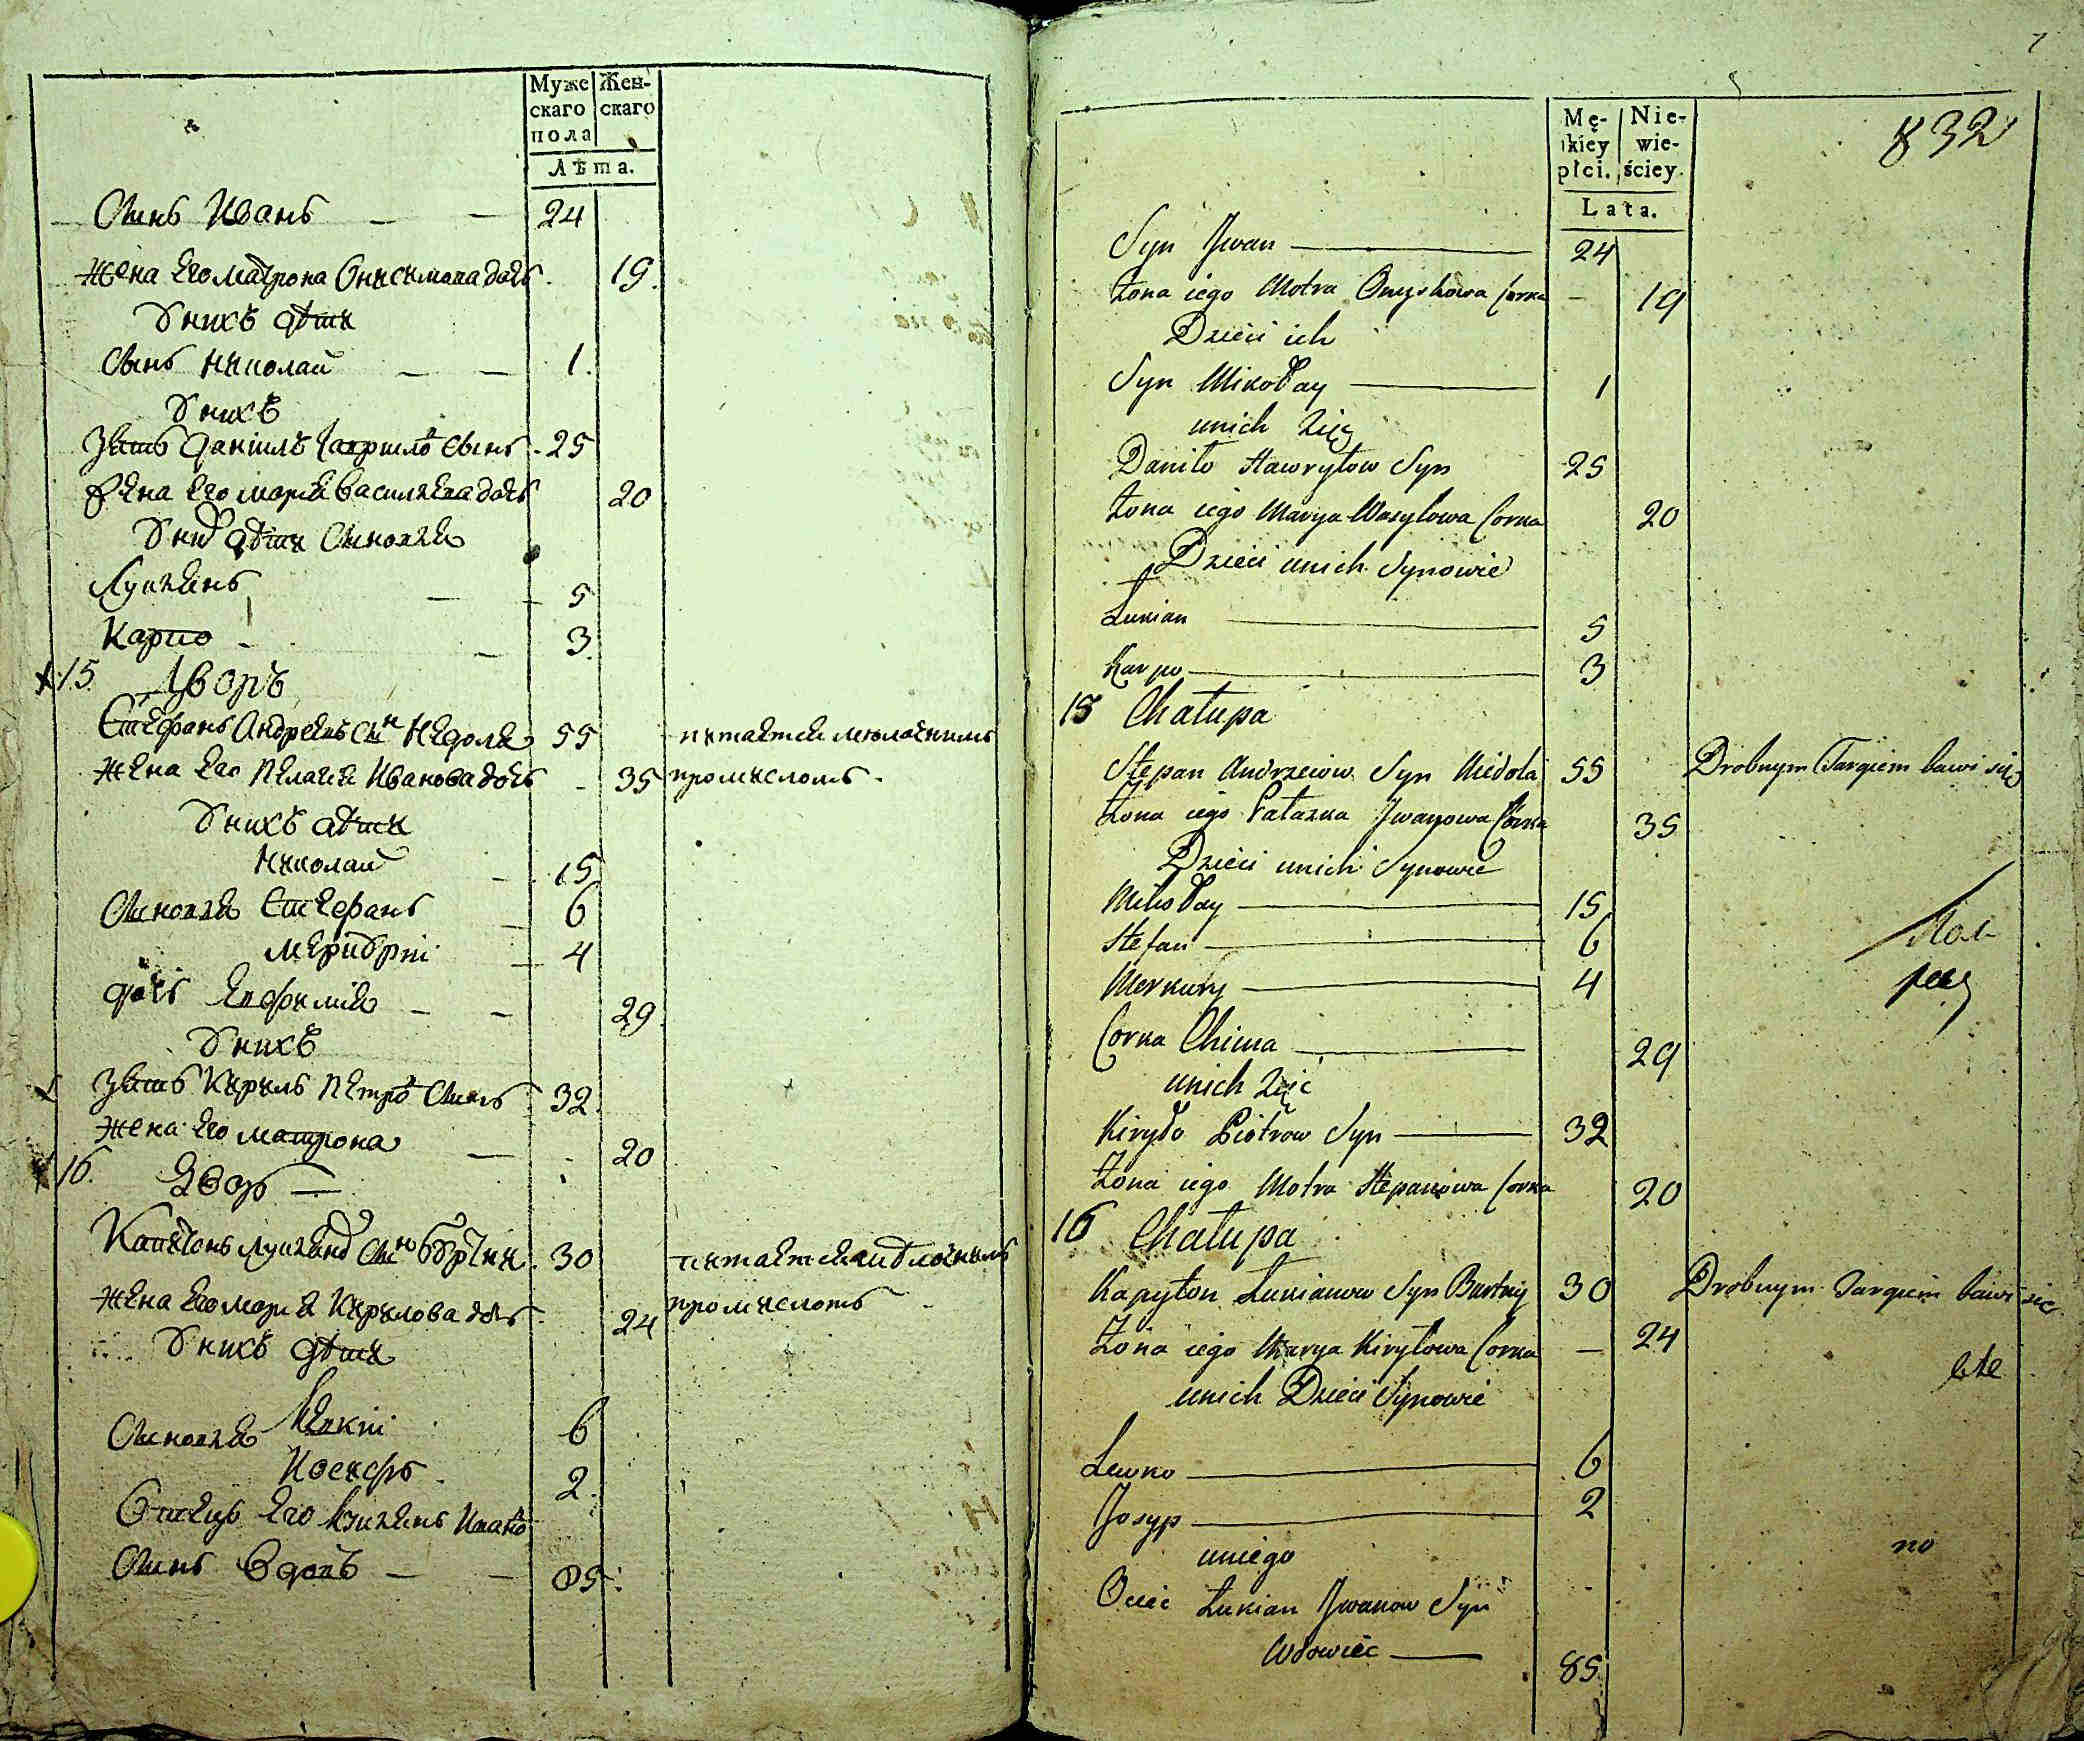 Муже
скаго
пола
Жен-
скаго
Лѣта.
Сынъ Иванъ — — 24
Жена его Матрона Онисимова дочь 19
У нихъ дѣти
Сынъ Николай — — 1
У нихъ
Зять Данiилъ Гаврилѡ сынъ 25
Жена его Марiя Василиева дочь 20
У нихъ дѣти сыновья
Лукиянъ — — 5
Карпо — — 3
15 Дворъ
Стефанъ Андреевъ снъ Недоля 55 питается мѣлочнымъ
Жена его Пелагея Иванова дочь 35 промысломъ
У нихъ дѣти
Николай 15
Сыновья Стефанъ 6
Меркурiй 4
дочь Евфимiя — — 29
У нихъ
Зять Кирилъ Петрѡ сынъ 32
Жена его Матрона — 20
16 Дворъ —
Капитонъ Лукиянѡ снъ 30 питается мѣлочнымъ
Жена его Марiя Кирилова дочь 24 промысломъ
У нихъ дѣти
Сыновья Левкiй 6
Иосифъ 2
Отецъ его Лукиянъ Иванѡ
Сынъ вдовъ — — 85
832
Mę-
skiey
płci.
Nie-
wie-
ściey.
Lata.
Syn Jwan — 24
Żona iego Motra Onyskowa Corka — 19
Dzieci ich
Syn Mikołay — 1
unich Zięć
Daniło Hawryłow Syn 25
Żona iego Marya Wasylowa Corka 20
Dzieci unich Synowie
Łukian — 5
Karpo — 3
15 Chałupa
Stepan Andrzeiow Syn Niedola 55 Drobnym Targiem bawi się
Żona iego Pałazka Jwanowa Corka 35
Dzieci unich Synowie
Mikołay — 15
Stefan — 6
Merkury — 4
Corka Chima — 29
unich Zięć
Kiryło Piotrow Syn — 32
Żona iego Motra Stepanowa Corka 20
16 Chałupa
Kapyton Łukianow Syn Burtny 30 Drobnym Targiem bawi się
Żona iego Marya Kiryłowa Corka — 24
unich Dzieci Synowie
Lewko — 6
Josyp — 2
uniego
no
Ociec Łukian Jwanow Syn
Wdowiec — 85